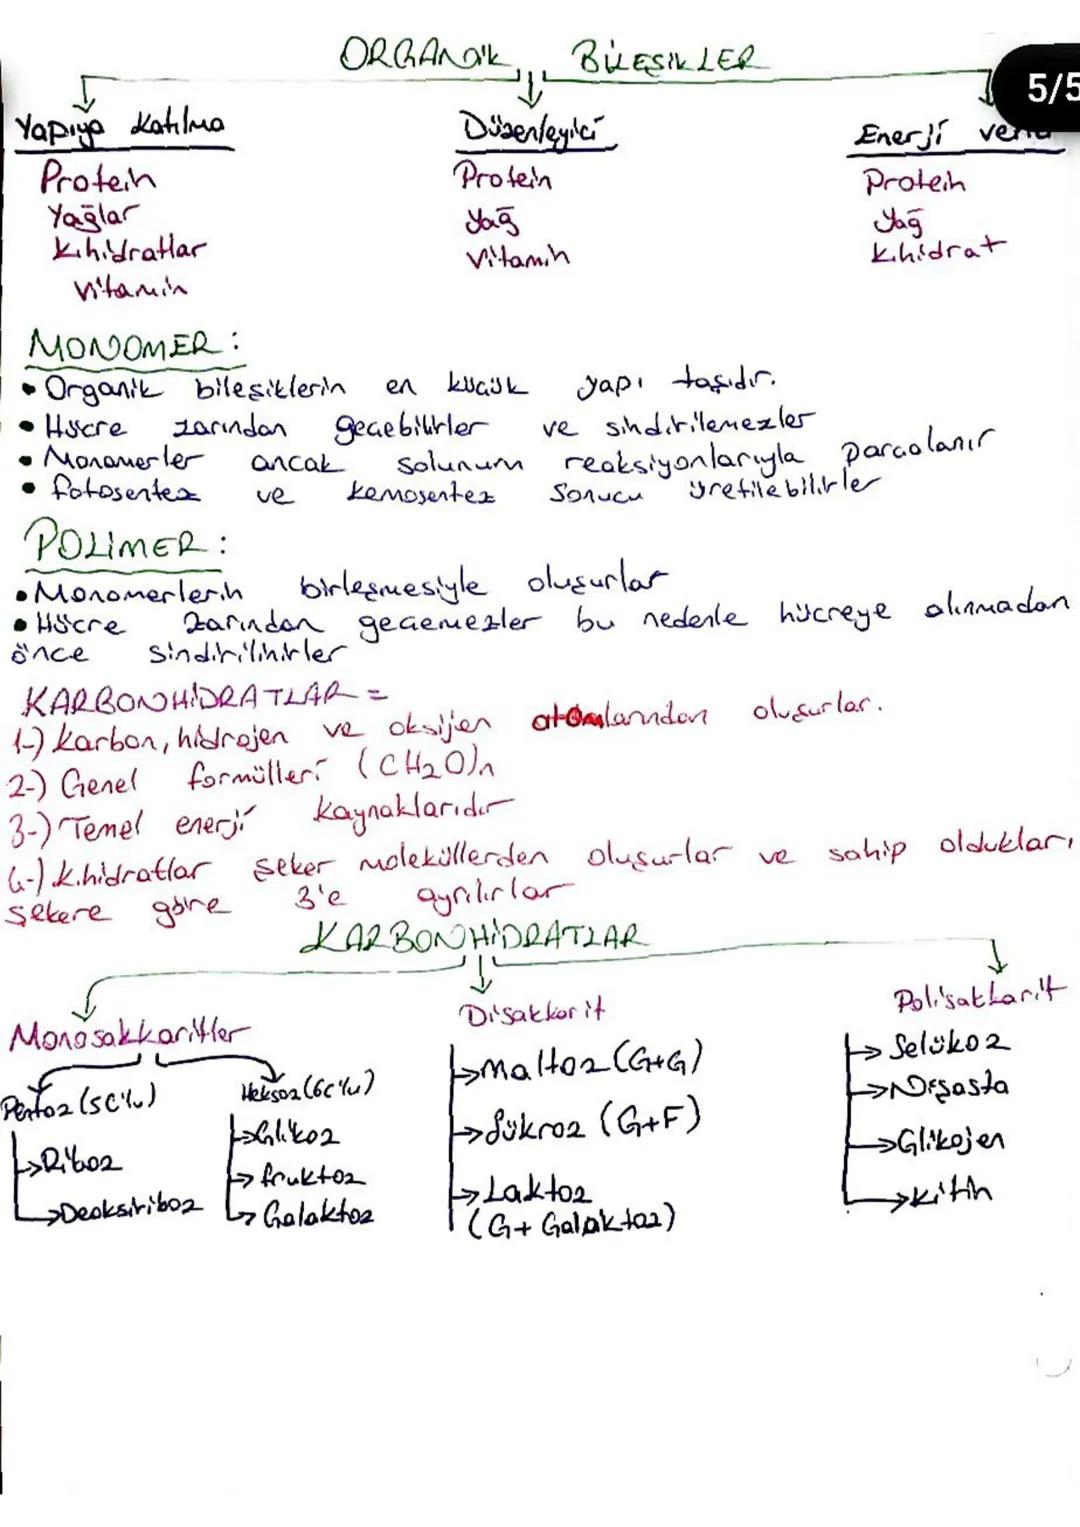 ORGANİK BİLEŞİKLER
5/5
Yapıya Katılma
Protein
Yağlar
K.hidratlar
Vitamin
Düzenleyici
Protein
Yağ
Vitamin
Enerji
Protein
Yağ
K.hidrat
MONOMER:
• Organik bileşiklerin en küçük yapı taşıdır.
• Hücre zarından geçebilirler ve sindirilemezler
• Monomerler ancak solunum reaksiyonlarıyla parçalanır
• fotosentez ve kemosentez sonucu üretilebilirler
POLİMER:
• Monomerlerin birleşmesiyle oluşurlar
• Hücre zarından geçemezler bu nedenle hücreye alınmadan
önce sindirilinirler
KARBONHİDRATLAR =
1-) Karbon, hidrojen ve oksijen atomlarından oluşurlar.
2-) Genel formülleri (CH2O)n
3-) Temel enerji kaynaklarıdır
4-) K.hidratlar şeker moleküllerden oluşurlar ve sahip oldukları
şekere göre 3'e ayrılırlar
KARBONHİDRATLAR
Monosakkaritler
Pentoz (5C'lu)
→Riboz
→Deoksiriboz
Heksoz (6C'lu)
→Glikoz
→fruktoz
→Galaktoz
Disakkarit
→Maltoz (G+G)
→Sükroz (G+F)
→Laktoz
(G+ Galaktoz)
Polisakkarit
→Selüloz
→Nişasta
→Glikojen
→Kitin